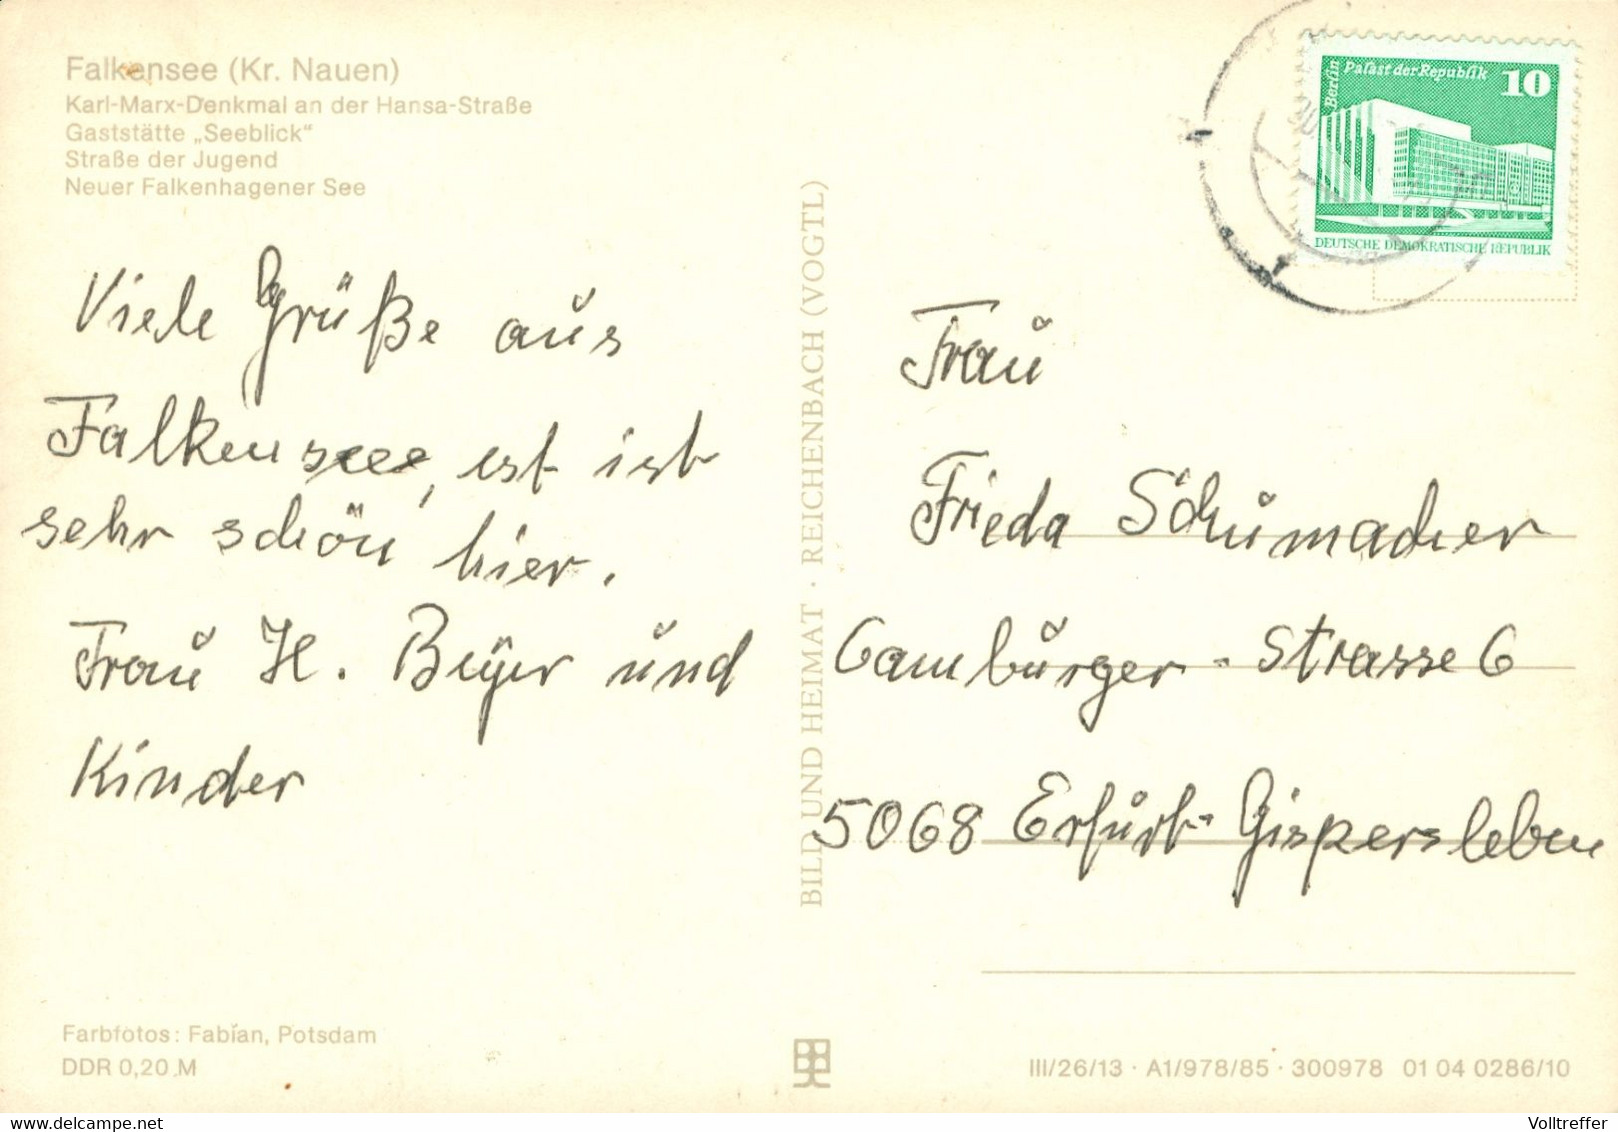 Falkensee (Kr. Nauen)
Karl-Marx-Denkmal an der Hansa-Straße
Gaststätte „Seeblick“
Straße der Jugend
Neuer Falkenhagener See
Viele Grüße aus
Falkensee, est ist
sehr schön hier.
Frau H. Beyer und
Kinder
Farbfotos: Fabian, Potsdam
DDR 0,20 M
BILD UND HEIMAT · REICHENBACH (VOGTL)
Berlin
Palast der Republik
10
DEUTSCHE DEMOKRATISCHE REPUBLIK
Frau
Frieda Schumacher
Camburger-Strasse 6
5068 Erfurt-Gispersleben
III/26/13 · A1/978/85 · 300978 01 04 0286/10
Volltreffer